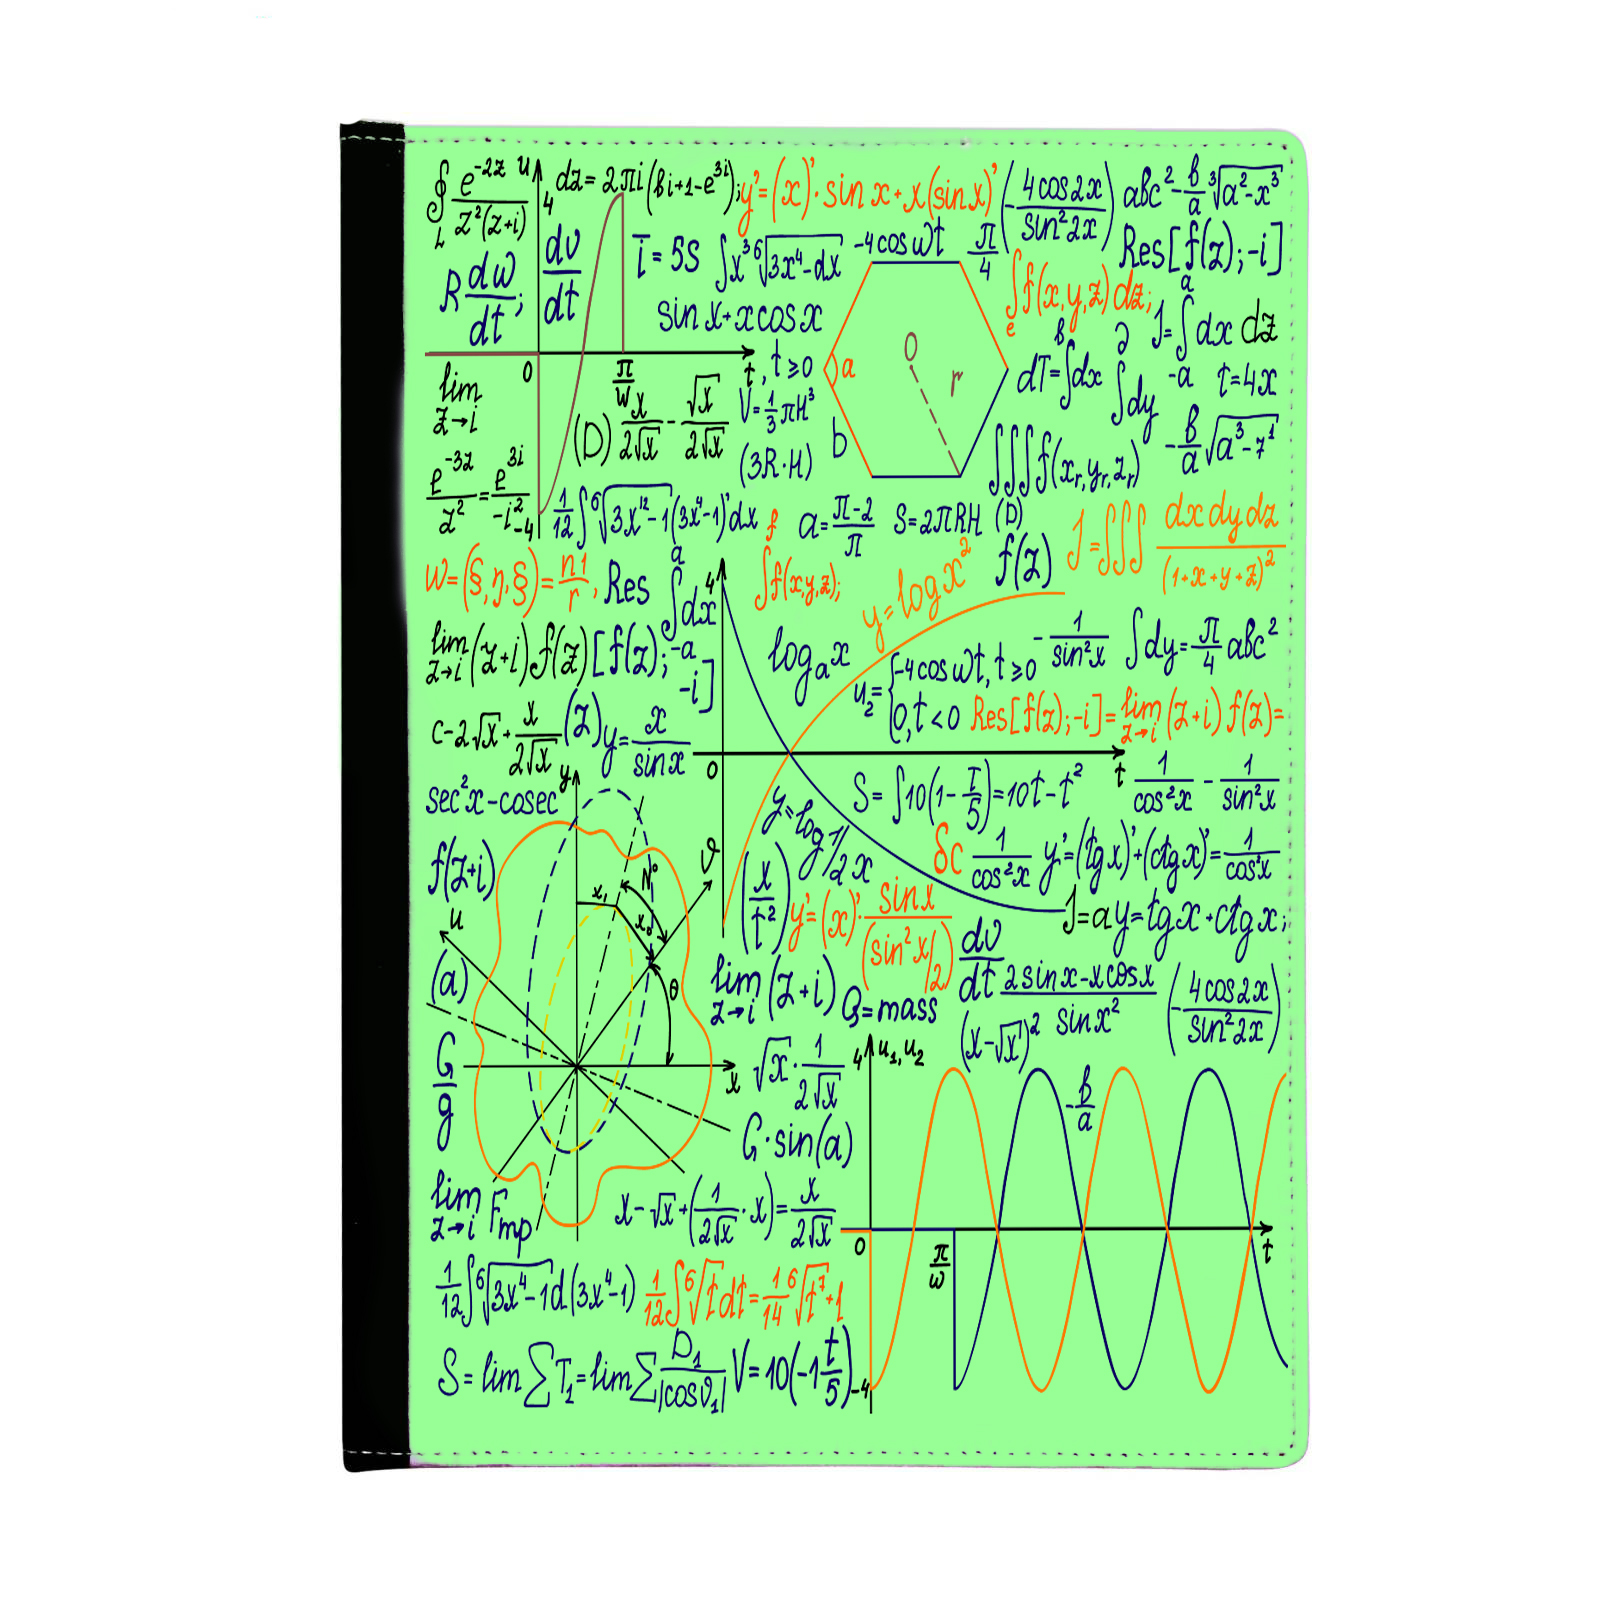 ∮_L e^{-2z}/(z²(z+i)) dz = 2πi(bi+1-e^{3i});
y'=(x)'·sin x+x(sin x)'
(-4cos2x/sin²2x)
abc²-b/a ∛(a²-x³)
u
4
R dω/dt;
dv/dt
τ̄ = 5S
∫x³ ⁶√(3x⁴-dx)
-4cos ωt
π/4
Res[f(z);-i]
sin x+xcosx
∫_e f(x,y,z)dz;
J=∫_{-a}^{a} dx dz
0
π/ω
t
, t⩾0
a
O
r
b
dT=∫^b dx
∂
∫dy
τ=4x
lim z→i
(D) x/2√x - √x/2√x
V=1/3 πH³
(3R·H)
∫∫∫f(x_r,y_r,z_r)
-b/a √(a³-7¹)
e^{-3z}/z² = e^{3i}/-i²
-4
1/12 ∫⁶√(3x¹²-1)(3x⁴-1)'dx
f
a=π-2/π
S=2πRH (D)
f(z)
J=∫∫∫ dxdydz/(1+x+y+z)²
w=(§,η,§)=n1/r,
Res
∫_{-a}^{a} dx
4
∫f(x,y,z);
y=logx²
lim z→i (z+i)f(z)
[f(z); -i]
log_a x
u₂={-4cos ωt, t⩾0
0, t<0
-1/sin²x
∫dy=π/4 abc²
Res[f(z);-i]=lim z→i (z+i)f(z)=
c-2√x+x/2√x
(z)
y=x/sinx
0
t
S=∫10(1-τ/5)=10t-t²
1/cos²x - 1/sin²x
sec²x-cosec
y
y=log1/2x
δc
1/cos²x
y'=(tgx)'+(ctgx)'=1/cos²x
f(z+i)
u
ϑ
x₁
N°
θ
x
(x/t²)
y'=(x)'·sinx/(sin²x/2)
J=ay=tgx+ctgx;
(a)
lim z→i (z+i)
G=mass
dv/dt
2sinx-xcosx/sinx²
(-4cos2x/sin²2x)
(x-√x)²
G/g
√x·1/2√x
4
u₁,u₂
-b/a
G·sin(a)
lim z→i
Fmp
x-√x+(1/2√x·x)=x/2√x
0
π/ω
t
1/12 ∫⁶√(3x⁴-1)d(3x⁴-1)
1/12 ∫⁶√t dt=1/14 ⁶√t⁷+1
S=lim∑T₁=lim∑D₁/|cosϑ₁|
V=10(-1 t/5)
-4